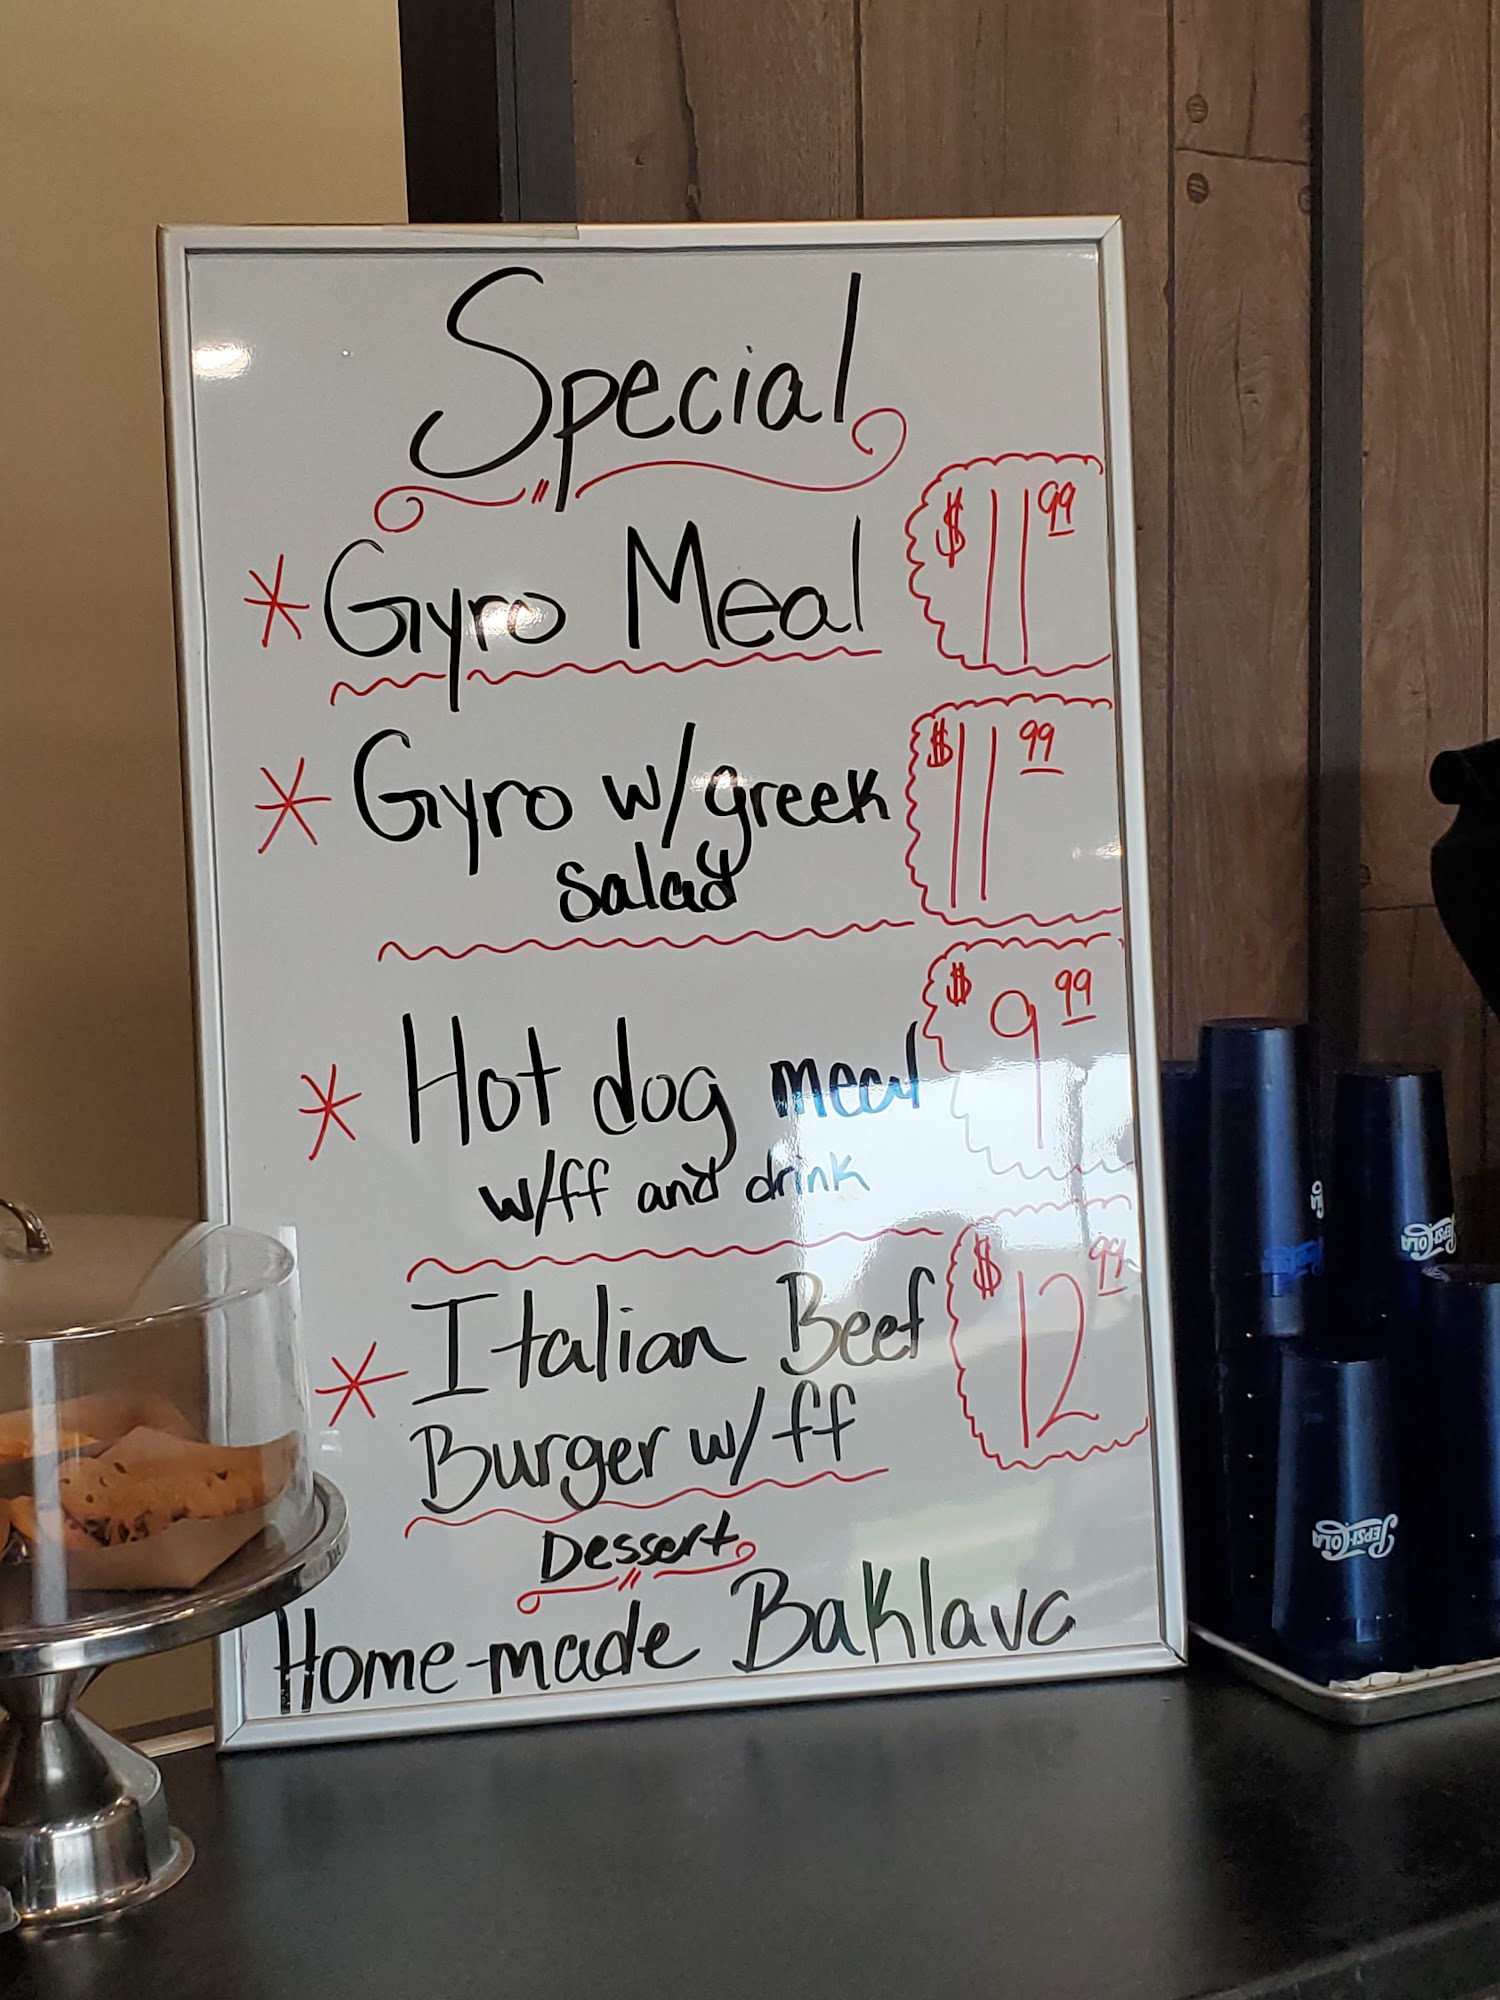 Special
* Gyro Meal $11.99
* Gyro w/greek $11.99
salad
* Hot dog meal $9.99
w/ff and drink
* Italian Beef $12.99
Burger w/ff
Dessert
Home-made Baklava
PEPSI-COLA
PEPSI-COLA